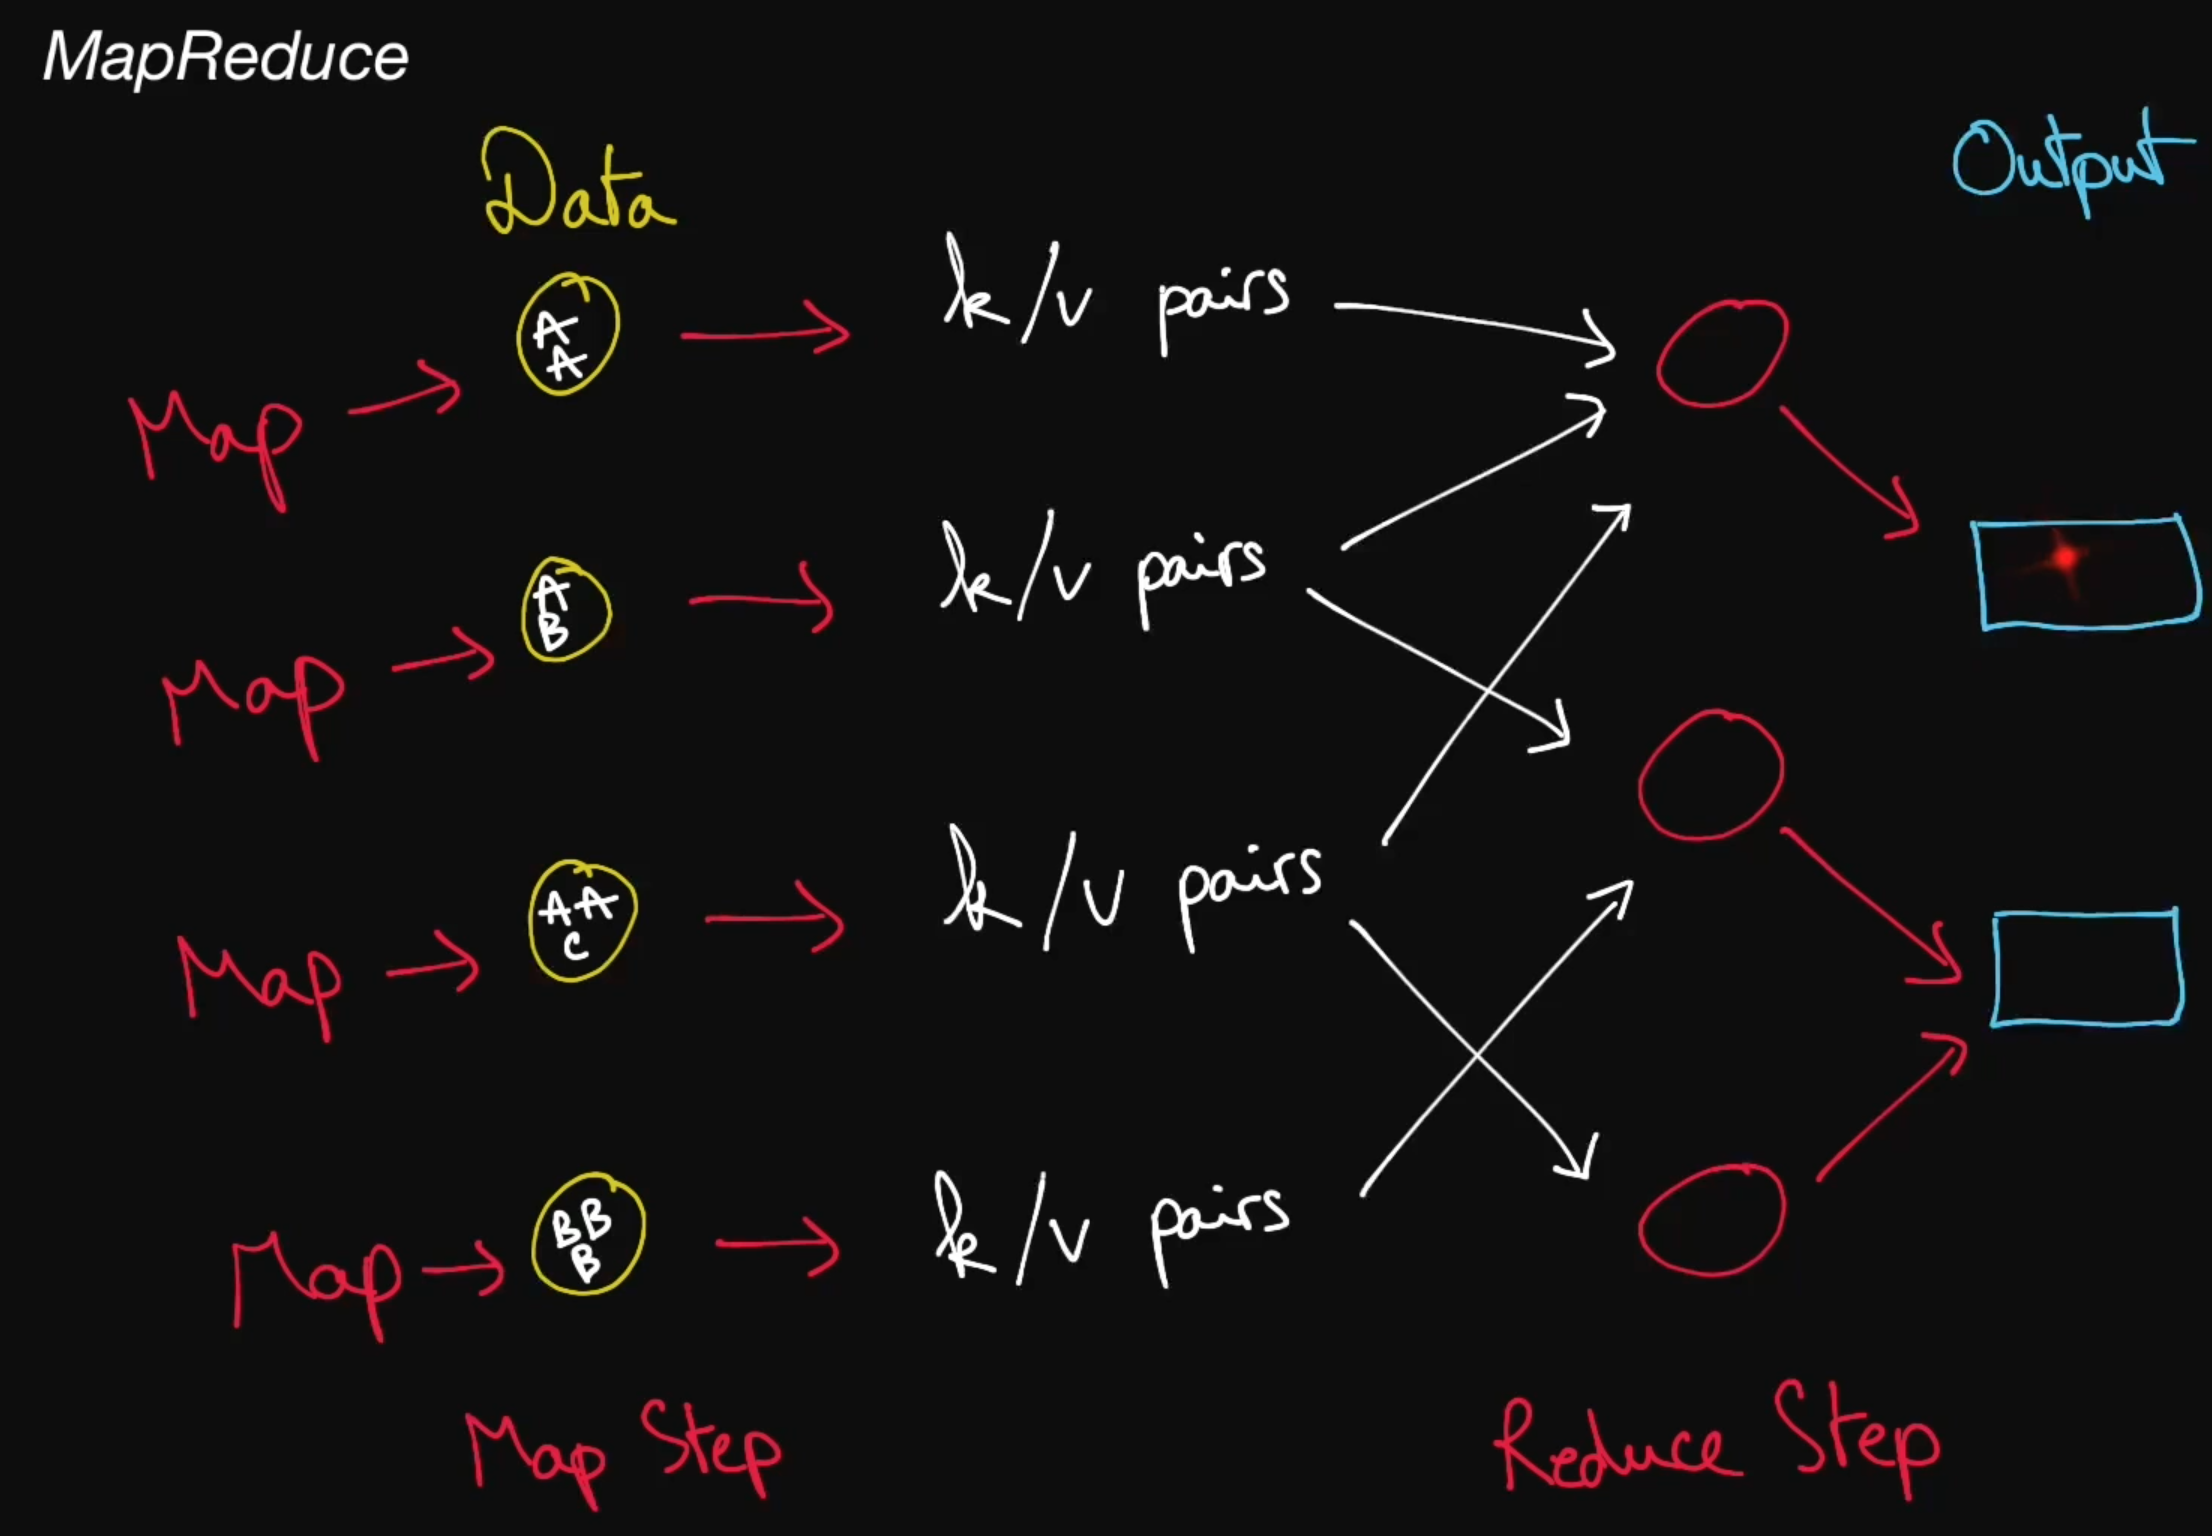 MapReduce
Data
Output
A
A
k/v pairs
Map
A
B
k/v pairs
Map
A A
C
k/v pairs
Map
B B
B
k/v pairs
Map
Map Step
Reduce Step